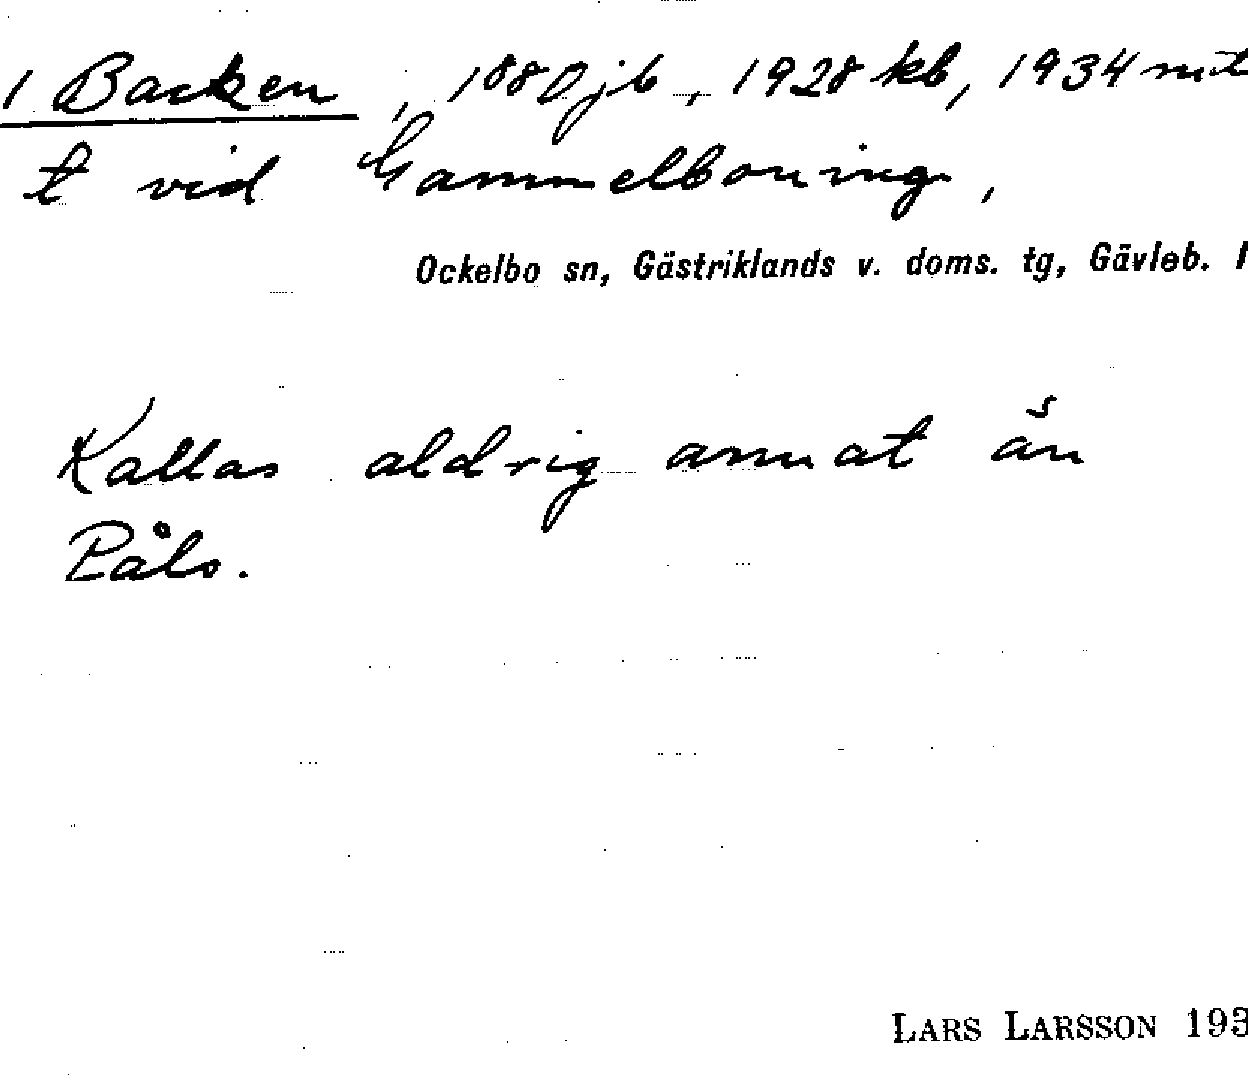 1 Backen, 1880 jb, 1928 kb, 1934 mt
t vid Gammelboning,
Ockelbo sn, Gästriklands v. doms. tg, Gävleb. l
Kallas aldrig annat än
Påls.
LARS LARSSON 193